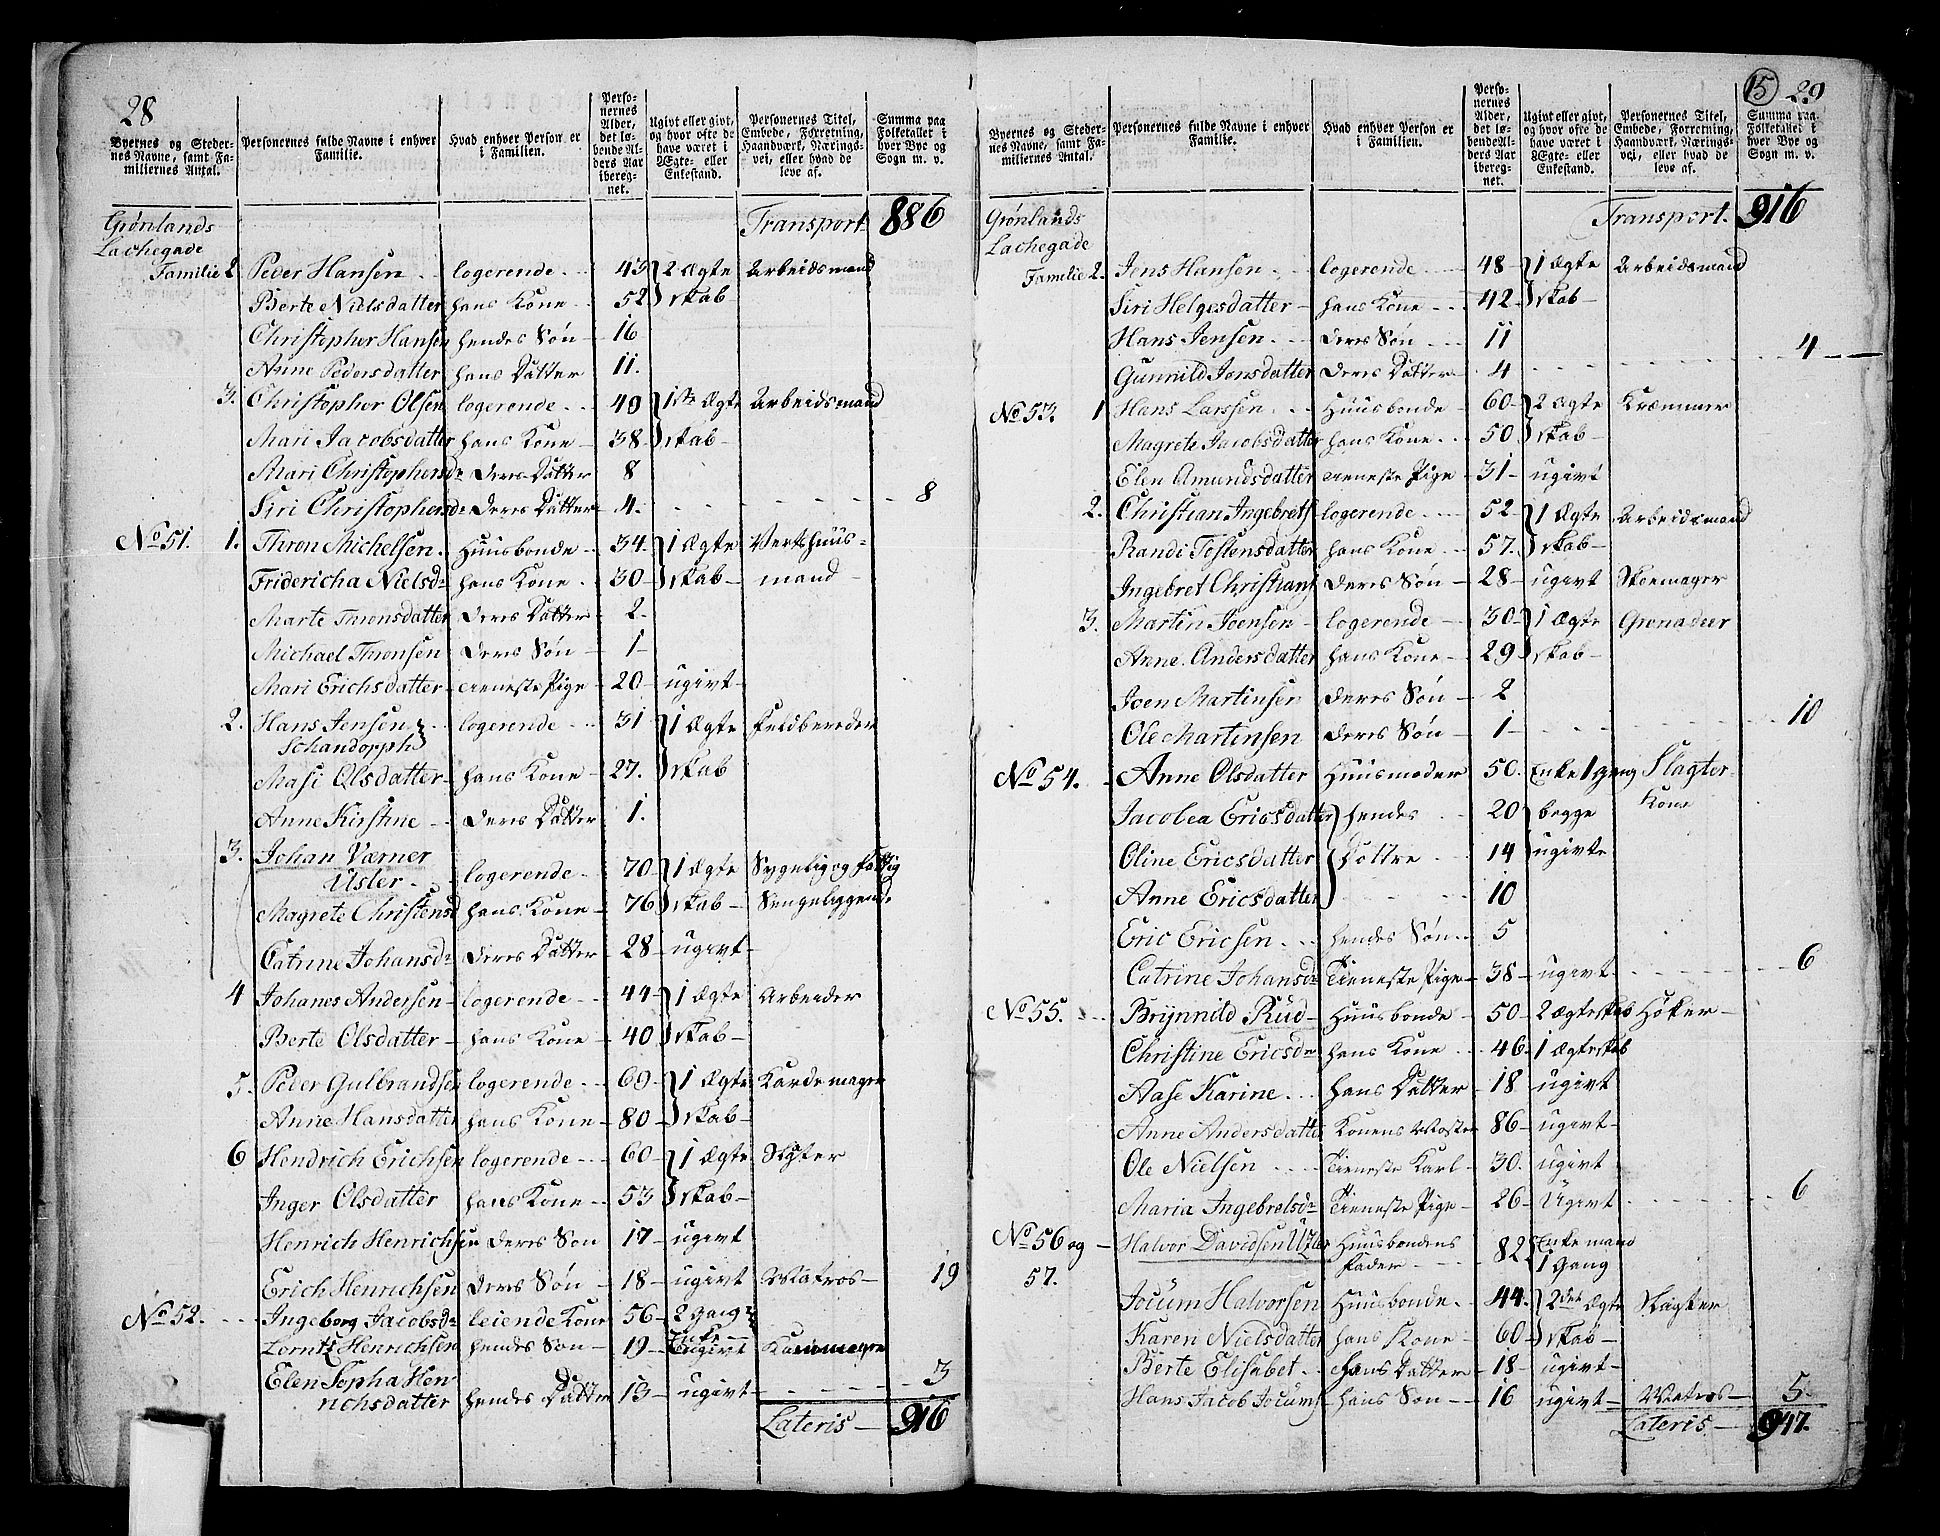 28
Byernes og Stedernes Navne, samt Familiernes Antal.
Personernes fulde Navne i enhver Familie.
Hvad enhver Person er i Familien.
Personernes Alder, det løbende Alders Aar iberegnet.
Ugivt eller givt, og hvor ofte de have været i Ægte- eller Enkestand.
Personernes Titel, Embede, Forretning, Haandværk, Næringsvei, eller hvad de leve af.
Summa paa Folketallet i hver Bye og Sogn m. v.
Grønlands Transport 886
Lachegade
Familie 2. Peder Hansen logerende 43 2 Ægte Arbeidsmand
Berte Nielsdatter hans Kone 52 skab
Christopher Hansen hendes Søn 16
Anne Pedersdatter hans Datter 11.
3. Christopher Olsen logerende 49 1ste Ægte Arbeidsmand
Mari Jacobsdatter hans Kone 38 skab
Mari Christophersdr deres Datter 8
Siri Christophersdr deres Datter 4. 8
No 51. 1. Thron Michelsen Huusbonde 34 1 Ægte Vertshuus-
Fridericha Nielsdr hans Kone 30 skab mand
Marte Thronsdatter deres Datter 2
Michael Thronsen deres Søn 1
Mari Erichsdatter tieneste Pige 20 ugivt
2. Hans Jensen logerende 31 1 Ægte Feldbereder
Schandorpph
Masi Olsdatter hans Kone 27. skab
Anne Kirstine deres Datter 1.
3. Johan Værner
Usler logerende 70 1 Ægte Sygelig og fattig
Magrete Christensd hans Kone 76 skab Sengeliggende
Catrine Johansdr deres Datter 28 ugivt
4 Johanes Andersen logerende 44 1 Ægte Arbeider
Berte Olsdatter hans Kone 40 skab
5. Peder Gulbrandsen logerende 60 1 Ægte Kardemager
Anne Hansdatter hans Kone 80 skab
6 Hendrich Erichsen logerende 60 1 Ægte
Inger Olsdatter hans Kone 53 skab
Henrich Henrichsen deres Søn 17 ugivt
Erich Henrichsen deres Søn 18 ugivt Matros 19
No 52. Ingeborg Jacobsdr leiende Kone 56 2 Gang
Enke
Lorntz Henrichsen hendes Søn 19 ugivt
Elen Sopha Hen 3
richsdatter hendes Datter 13 ugivt
Lateris 916
15 29
Byernes og Stedernes Navne, samt Familiernes Antal.
Personernes fulde Navne i enhver Familie.
Hvad enhver Person er i Familien.
Personernes Alder, det løbende Alders Aar iberegnet.
Ugivt eller givt, og hvor ofte de have været i Ægte- eller Enkestand.
Personernes Titel, Embede, Forretning, Haandværk, Næringsvei, eller hvad de leve af.
Summa paa Folketallet i hver Bye og Sogn m. v.
Grønlands Transport. 916
Lachegade
Familie 2. Jens Hansen logerende 48 1 Ægte Arbeidsmand
Siri Helgesdatter hans Kone 42 skab
Hans Jensen deres Søn 11
Gunnild Jensdatter deres Datter 4 4
No 53. 1 Hans Larssen Huusbonde 60 2 Ægte Kræmmer
Magrete Jacobsdatter hans Kone 50 skab
Elen Amundsdatter tieneste Pige 31 ugivt
2. Christian Ingebrets logerende 52 1 Ægte Arbeidsmand
Randi Tostensdatter hans Kone 57. skab
Ingebret Christians deres Søn 28 ugivt Skoemager
3. Martin Joensen logerende 30 1 Ægte Grenadeer
Anne Andersdatter hans Kone 29 skab
Joen Martinsen deres Søn 2
Ole Martinsen deres Søn 1 10
No 54. Anne Olsdatter Huusmoder 50. Enke 1 gang Slagter
Kone
Jacobea Ericsdatter hendes 20 begge
Oline Ericsdatter Døttre 14 ugivte
Anne Ericsdatter 10
Eric Ericsen hendes Søn 5
Catrine Johansdr Tieneste Pige 38 ugivt 6
No 55. Brynnild Rud Huusbonde 50 2 Ægteskab Høker
Christine Ericsdr hans Kone 46 1 Ægteskab
Aase Karine hans Datter 18 ugivt
Anne Andersdatter Konens Moster 86 ugivt
Ole Nielsen Tieneste Karl 30. ugivt
Maria Ingebretsdr Tieneste Pige 26 Ugivt 6
No 56 og Halvor Davidsen Usler Huusbondens 82 Enkemand
57. Fader 1 Gang
Jocum Halvorsen Huusbonde 44. 2den Ægte Slagter
Karen Nielsdatter hans Kone 60 skab
Berte Elisabet hans Datter 18 ugivt
Hans Jacob Jocums hans Søn 16 ugivt Matros 5.
Lateris 947.